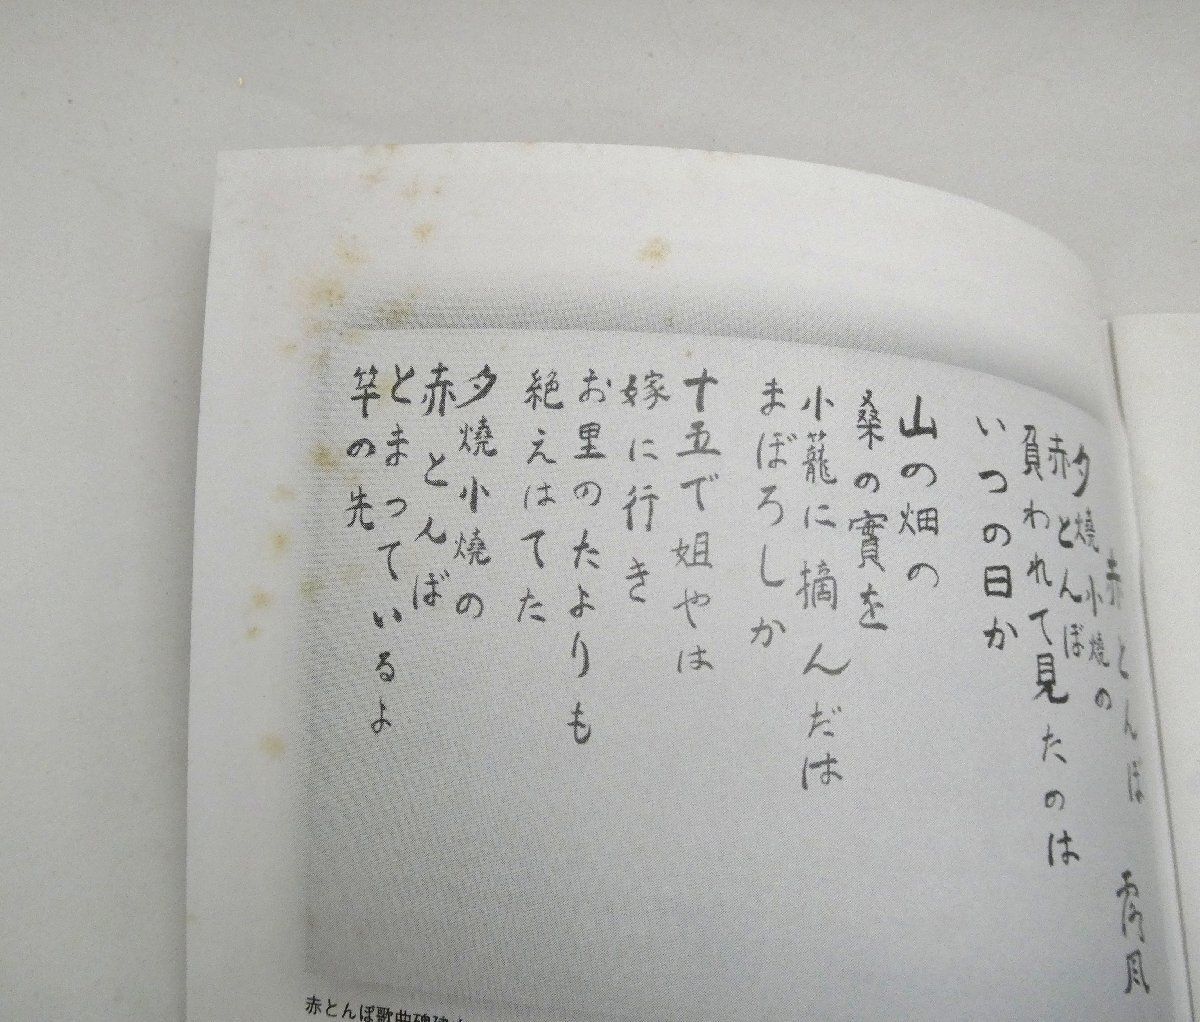 赤とんぼ 露風
夕燒小燒の
赤とんぼ
負われて見たのは
いつの日か
山の畑の
桑の實を
小籠に摘んだは
まぼろしか
十五で姐やは
嫁に行き
お里のたよりも
絶えはてた
夕燒小燒の
赤とんぼ
とまっているよ
竿の先
赤とんぼ歌曲碑